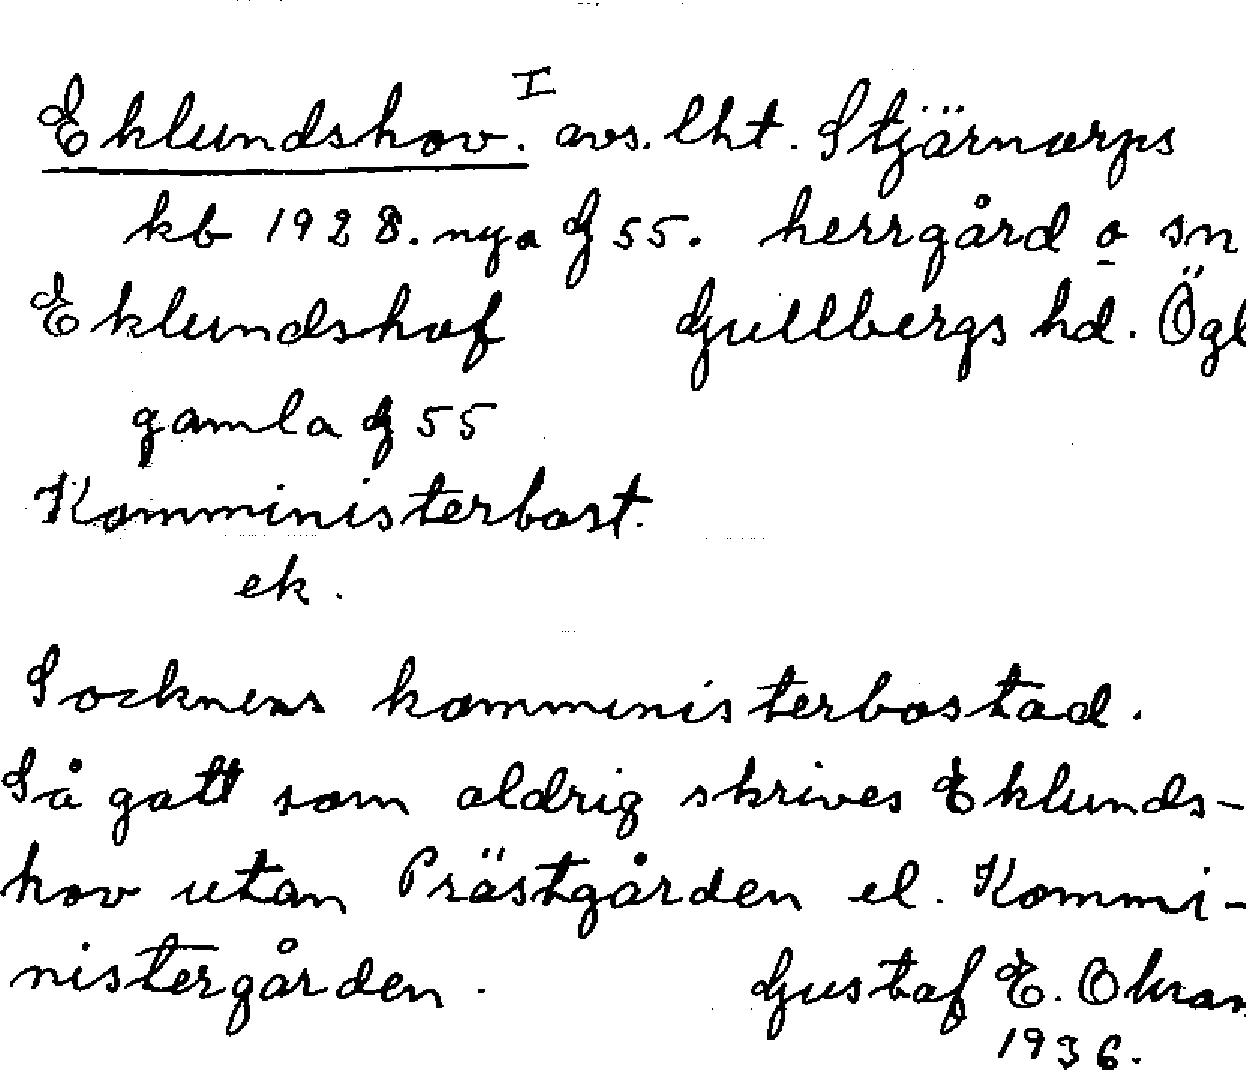 Eklundshov. I avs. lht. Stjärnorps
kb 1928. nya G 55. herrgård o sn
Eklundshof Gullbergs hd. Ögl
gamla G 55
Komministerbost.
ek.
Socknens komministerbostad.
Så gott som aldrig skrives Eklunds-
hov utan Prästgården el. Kommi-
nistergården. Gustaf E.
1936.